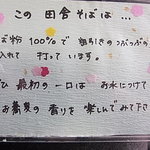 この 田舎そばは…
ば粉 100%で 粗引きのつぶつぶの
入れて 打って います。
ひ 最初の 一口は お水につけて
お蕎麦の 香りを 楽しんでみて下さ